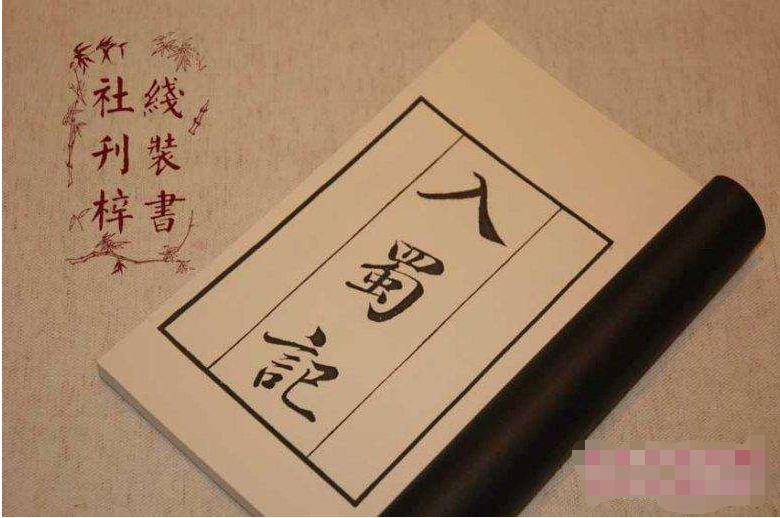 綫裝書
社刊梓
入蜀記